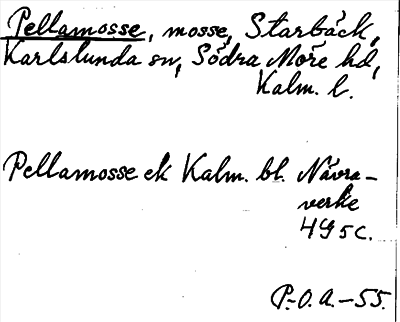 Pellamosse, mosse, Starbäck,
Karlslunda sn, Södra Möre hd,
Kalm. l.
Pellamosse ek Kalm. bl. Nävra-
verke
4G5c.
P.-O.A.-55.